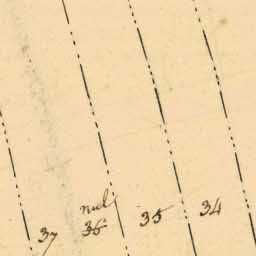 nul
37 36 35 34